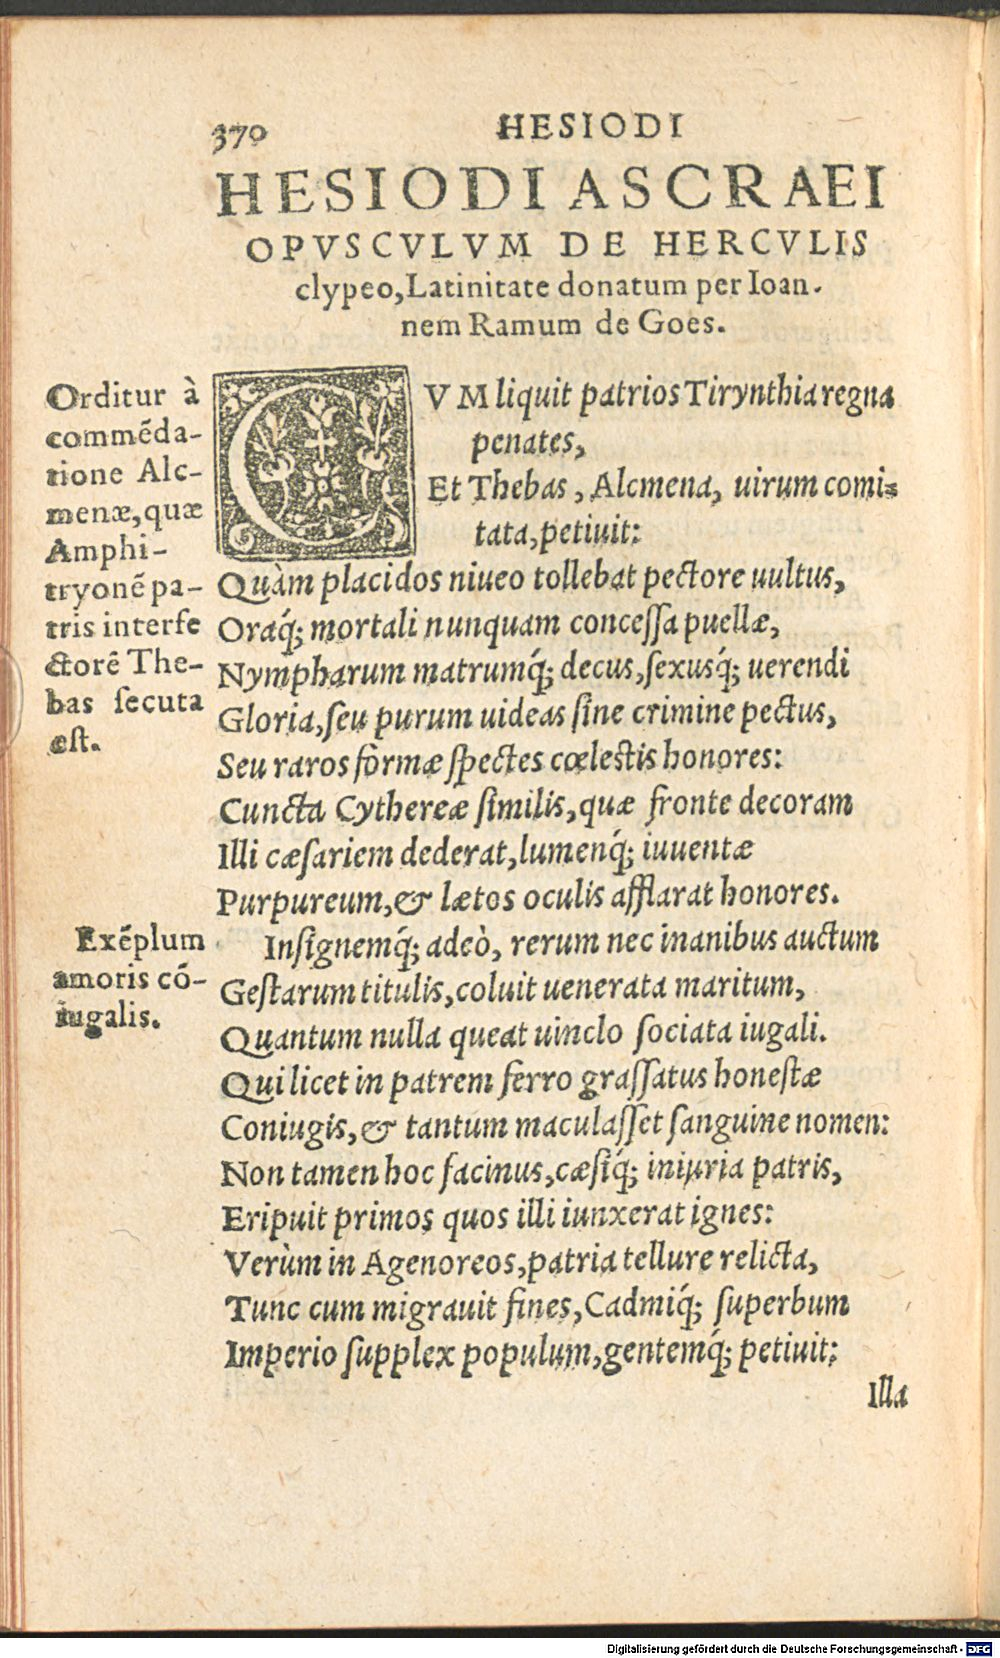 370 HESIODI
HESIODI ASCRAEI
OPVSCVLVM DE HERCVLIS
clypeo, Latinitate donatum per Ioan-
nem Ramum de Goes.
Orditur à
commẽda-
tione Alc-
menæ, quæ
Amphi-
tryonẽ pa-
tris interfe
ctorẽ The-
bas secuta
est.
CVM liquit patrios Tirynthia regna
penates,
Et Thebas, Alcmena, uirum comi-
tata, petiuit:
Quàm placidos niueo tollebat pectore uultus,
Oraq́; mortali nunquam concessa puellæ,
Nympharum matrumq́; decus, sexusq́; uerendi
Gloria, seu purum uideas sine crimine pectus,
Seu raros formæ spectes cœlestis honores:
Cuncta Cythereæ similis, quæ fronte decoram
Illi cæsariem dederat, lumenq́; iuuentæ
Purpureum, & lætos oculis afflarat honores.
Exẽplum
amoris cõ-
iugalis.
Insignemq́; adeò, rerum nec inanibus auctum
Gestarum titulis, coluit uenerata maritum,
Quantum nulla queat uinclo sociata iugali.
Qui licet in patrem ferro grassatus honestæ
Coniugis, & tantum maculasset sanguine nomen:
Non tamen hoc facinus, cæsiq́; iniuria patris,
Eripuit primos quos illi iunxerat ignes:
Verùm in Agenoreos, patria tellure relicta,
Tunc cum migrauit fines, Cadmiq́; superbum
Imperio supplex populum, gentemq́; petiuit:
Illa
Digitalisierung gefördert durch die Deutsche Forschungsgemeinschaft - DFG